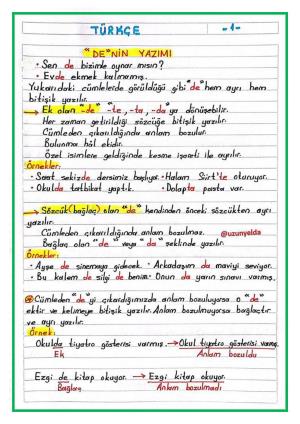 TÜRKÇE
-1-
"DE"NİN YAZIMI
• Sen de bizimle oynar mısın?
• Evde ekmek kalmamış.
Yukarıdaki cümlelerde görüldüğü gibi "de" hem ayrı hem
bitişik yazılır.
→ Ek olan "-de" "-te, -ta, -da"ya dönüşebilir.
Her zaman getirildiği sözcüğe bitişik yazılır.
Cümleden çıkarıldığında anlam bozulur.
Bulunma hâl ekidir.
Özel isimlere geldiğinde kesme işareti ile ayrılır.
Örnekler:
• Saat sekizde dersimiz başlıyor. • Halam Siirt'te oturuyor.
• Okulda tatbikat yaptık. • Dolapta pasta var.
→ Sözcük (bağlaç) olan "de" kendinden önceki sözcükten ayrı
yazılır.
Cümleden çıkarıldığında anlam bozulmaz. @uzunyelda
Bağlaç olan "de" veya "da" şeklinde yazılır.
Örnekler:
• Ayşe de sinemaya gidecek. • Arkadaşım da maviyi seviyor.
• Bu kalem de silgi de benim. • Onun da yarın sınavı varmış.
Cümleden "de"yi çıkardığımızda anlam bozuluyorsa o "de"
ektir ve kelimeye bitişik yazılır. Anlam bozulmuyorsa bağlaçtır
ve ayrı yazılır.
Örnek:
Okulda tiyatro gösterisi varmış. → Okul tiyatro gösterisi varmış.
Ek Anlam bozuldu
Ezgi de kitap okuyor. → Ezgi kitap okuyor.
Bağlaç Anlam bozulmadı